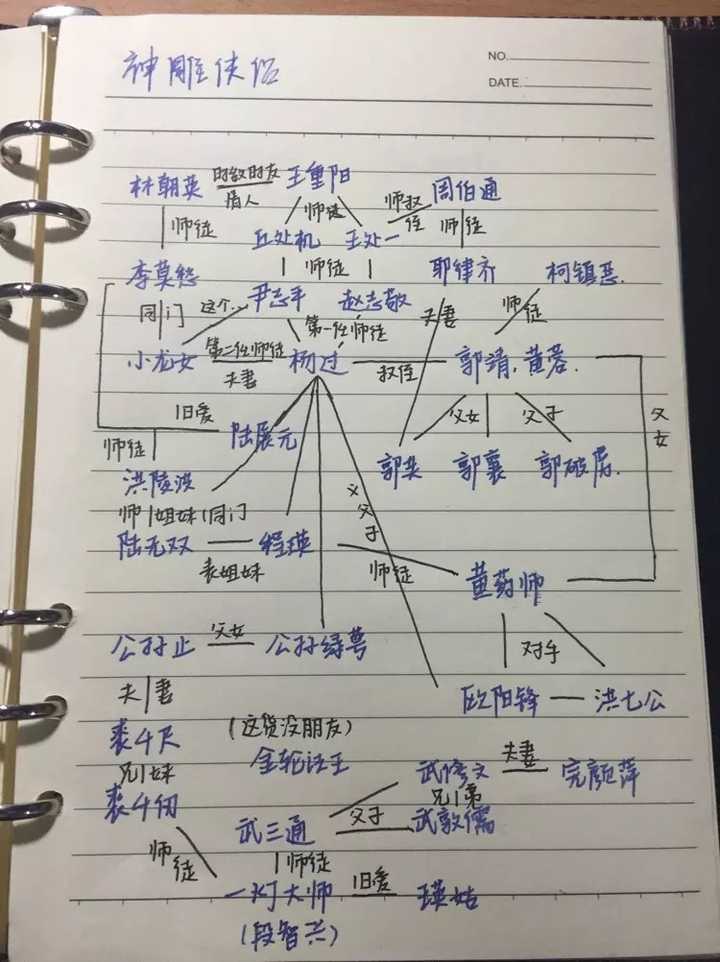 神雕侠侣
NO.
DATE.
林朝英 时敌时友 王重阳 师叔 周伯通
情人 师徒 侄 师徒
师徒
丘处机 王处一
李莫愁 师徒 耶律齐 柯镇恶
同门 这个... 尹志平 赵志敬 夫妻 师徒
第一任师徒
小龙女 第二任师徒 杨过 叔侄 郭靖,黄蓉
夫妻
旧爱 父女 父子 父女
师徒 陆展元
洪陵波 郭芙 郭襄 郭破虏
师 姐妹 同门 义父子
陆无双 程瑛 师徒
表姐妹 黄药师
公孙止 父女 公孙绿萼 对手
夫妻 欧阳锋 洪七公
裘千尺 (这货没朋友)
兄妹 金轮法王 武修文 夫妻 完颜萍
裘千仞 兄弟
武三通 父子 武敦儒
师徒 师徒
一灯大师 旧爱 瑛姑
(段智兴)